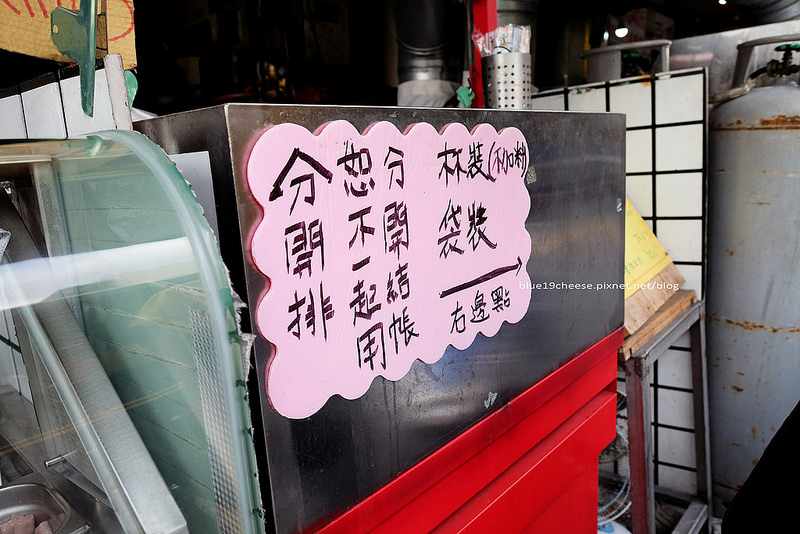 杯裝(不加料)
袋裝
右邊點
分開結帳
恕不一起用
分開排
blue19cheese.pixnet.net/blog